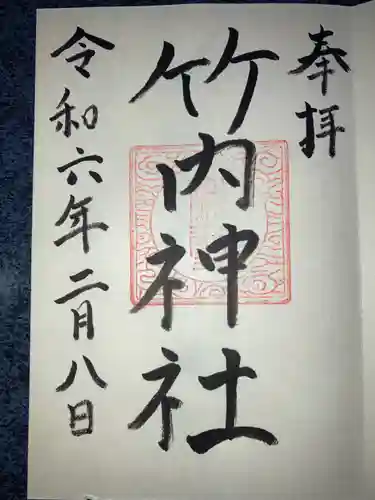 奉拝
竹内神社
令和六年二月八日